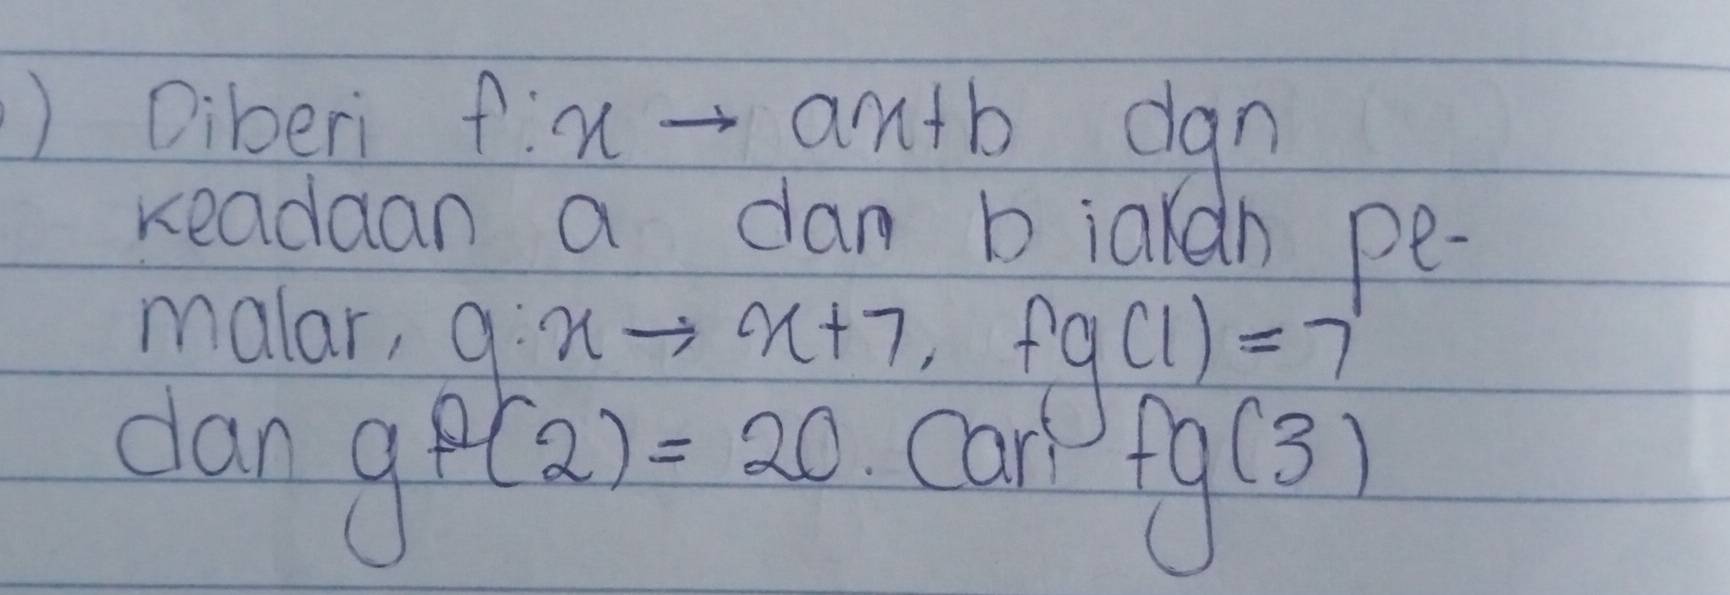 ) Diberi f:x → ax+b dgn
keadaan a dan b ialah pe-
malar, g:x → x+7, fg(1)=7
dan gf(2)= 20. Cari fg(3)